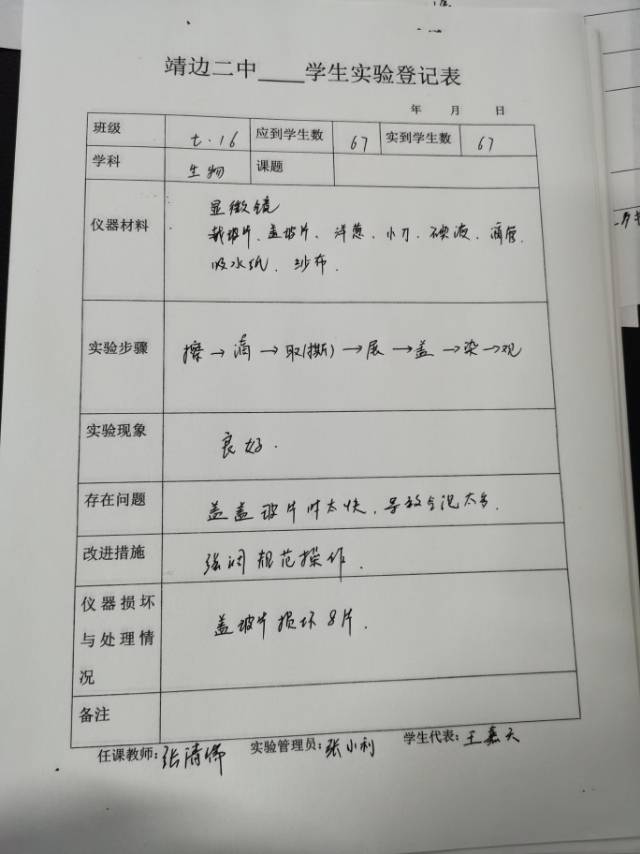 靖边二中____学生实验登记表
年 月 日
班级 七.16 应到学生数 67 实到学生数 67
学科 生物 课题
仪器材料 显微镜
载玻片、盖玻片、洋葱、小刀、碘液、滴管、
吸水纸、纱布.
实验步骤 擦→滴→取(撕)→展→盖→染→观
实验现象 良好.
存在问题 盖盖玻片时太快,导致气泡太多.
改进措施 强调规范操作.
仪器损坏
与处理情
况
盖玻片损坏8片.
备注
任课教师: 张 实验管理员: 张小利 学生代表: 王嘉天